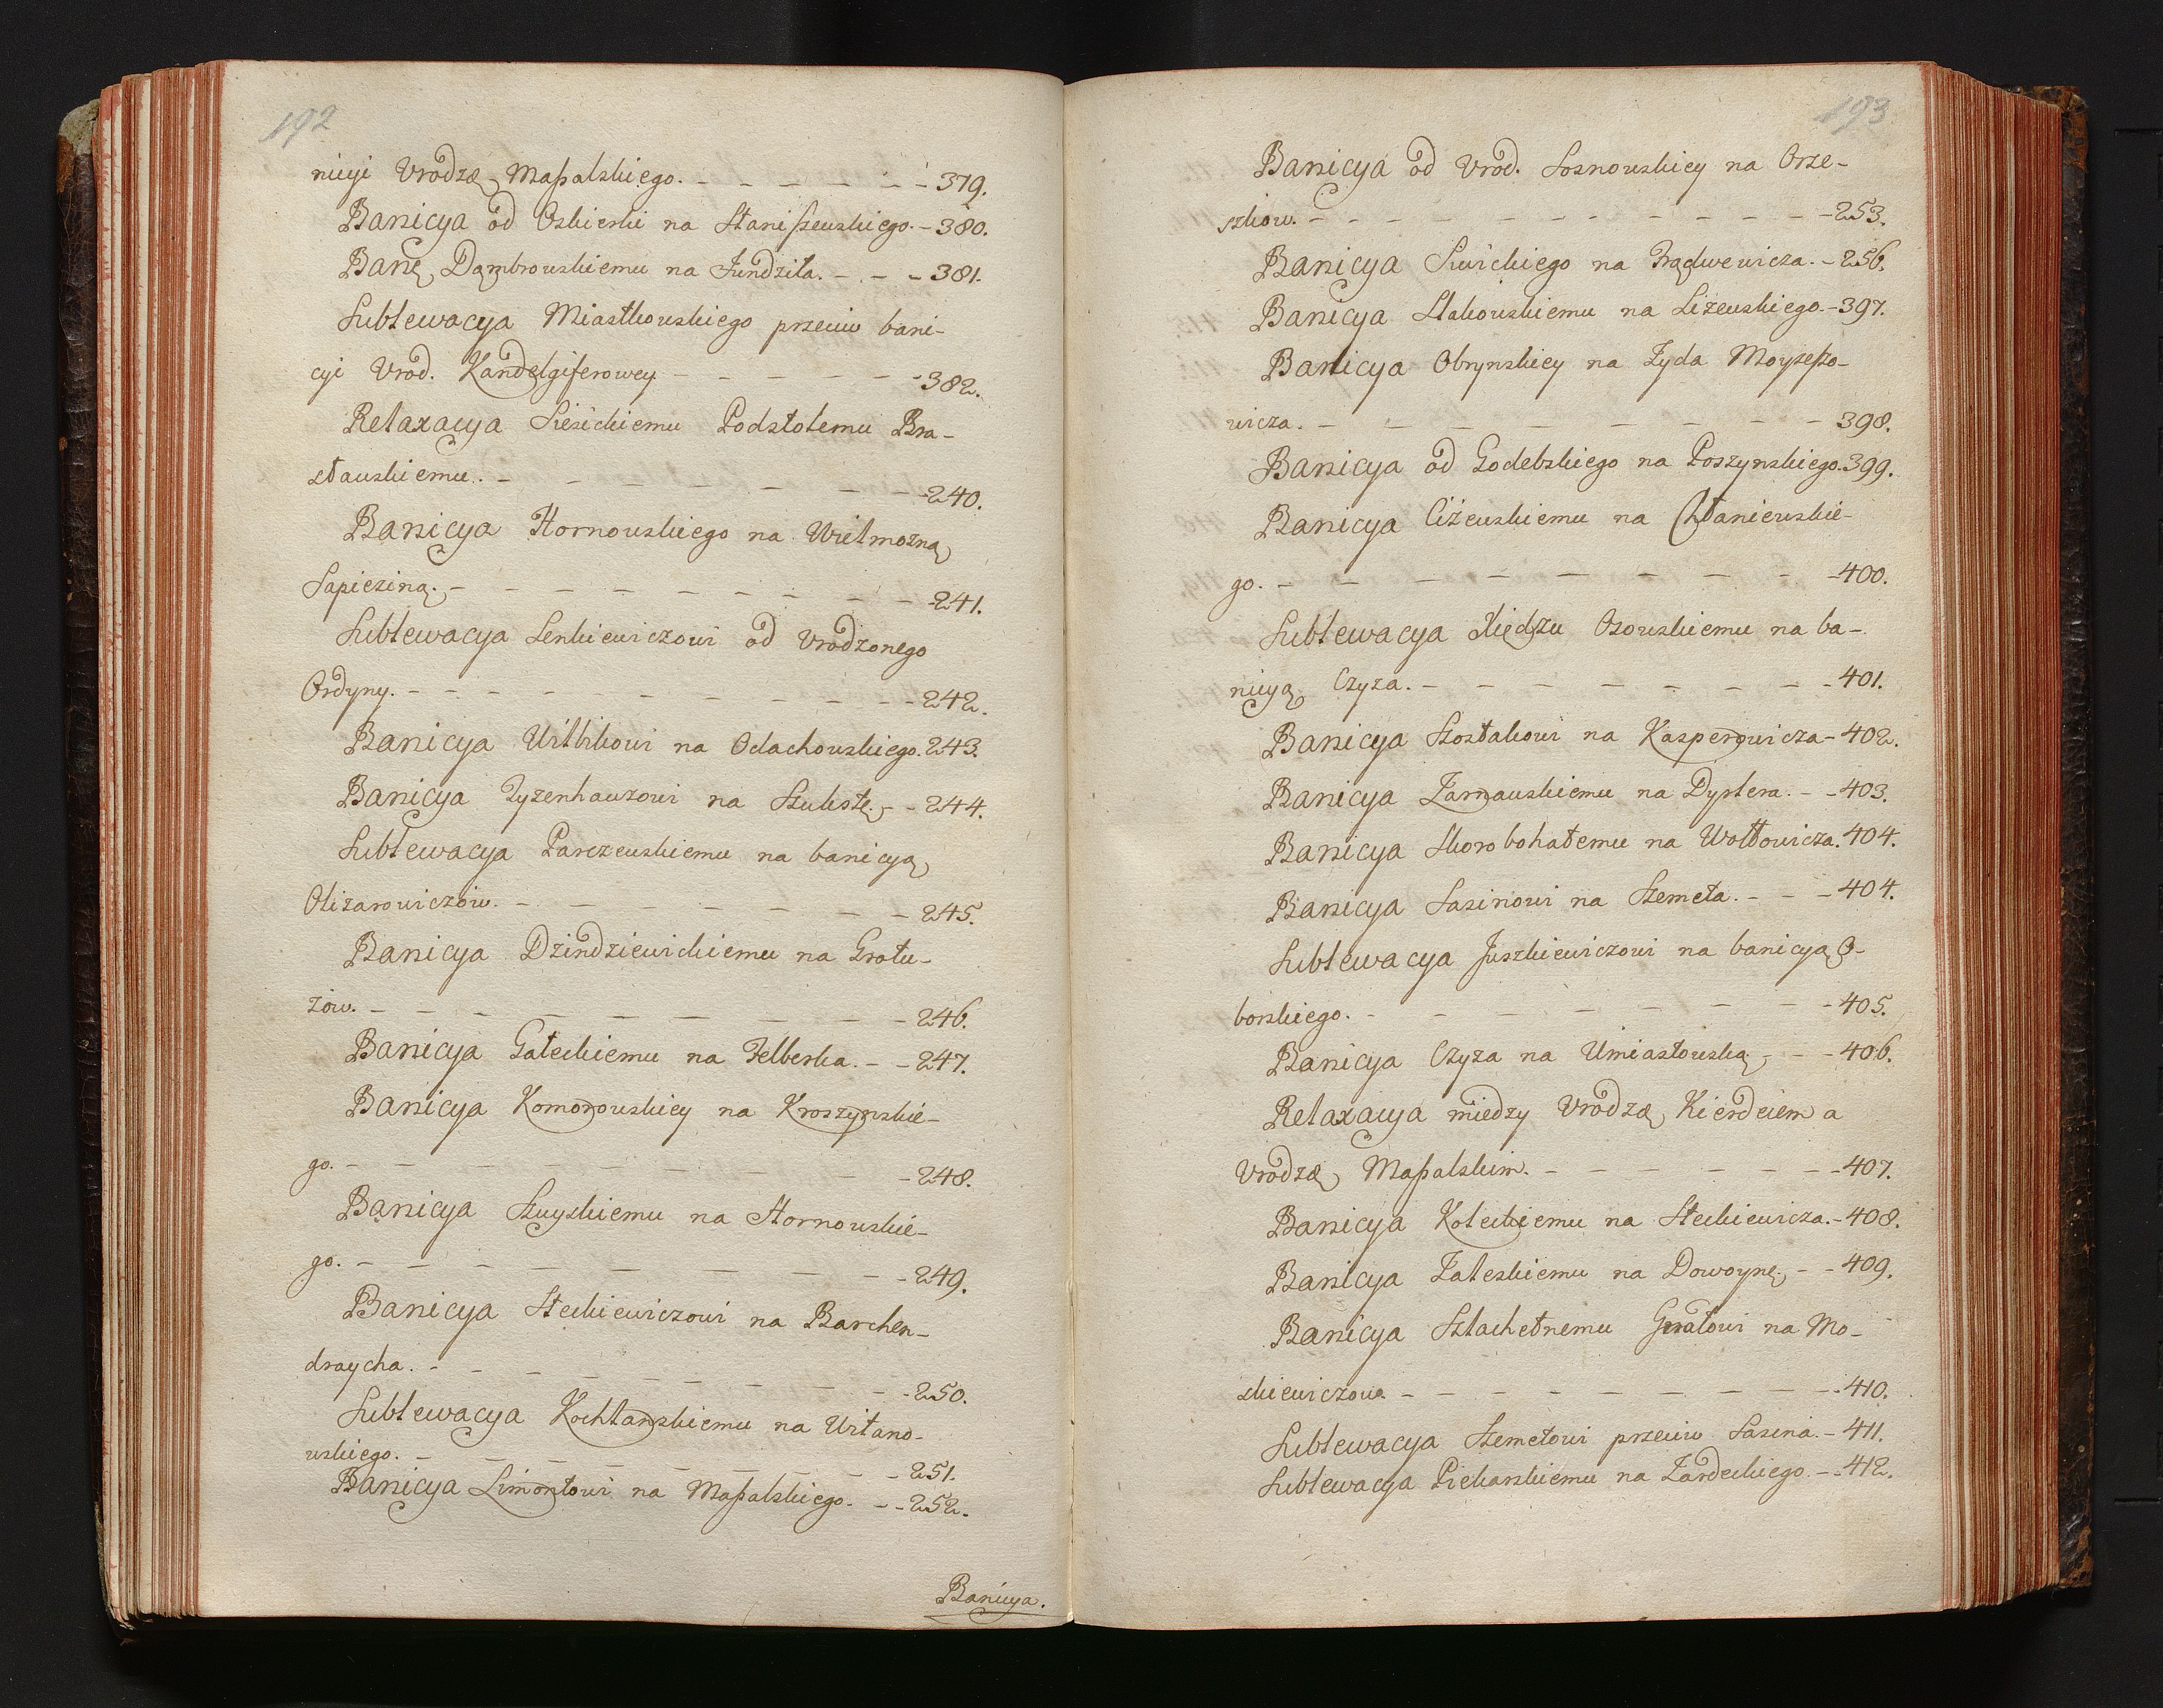 192
nicyi Vrodzę Maszalskiego. - - - - - - 379.
Banicya od Oskierki na Staniszewskiego. - 380.
Banę Dąmbrowskiemu na Jundziła. - - - 381.
Sublewacya Miastkowskiego przeciw bani-
cyi Vrod. Kandelgiferowey - - - - - - 382.
Relaxacya Siesickiemu Podstolemu Bra-
sławskiemu. - - - - - - - 240.
Banicya Hornowskiego na Wielmożną
Sapieżiną. - - - - - - - - - 241.
Sublewacya Lenkiewiczowi od Vrodzonego
Ordyny. - - - - - - - - - - 242.
Banicya Wilbikowi na Odachowskiego. 243.
Banicya Tyzenhauzowi na Szukstę. - - 244.
Sublewacya Parczewskiemu na banicyą
Olizarowiczów. - - - - - - - 245.
Banicya Dzindziewickiemu na Grotu-
zów. - - - - - - - - - 246.
Banicya Gałeckiemu na Felberka. - - 247.
Banicya Komorowskiey na Kroszynskie-
go. - - - - - - - - - 248.
Banicya Szuyskiemu na Hornowskie-
go. - - - - - - - - - 249.
Banicya Steckiewiczowi na Barchen-
draycha. - - - - - - - - - - 250.
Sublewacya Kochlanskiemu na Witano-
wskiego. - - - - - - - - 251.
Banicya Limontowi na Maszalskiego. - - 252.
Banicya.
193
Banicya od Vrod. Sosnowskiey na Orze-
szków. - - - - - - - - - - - 253.
Banicya Siwickiego na Brądwewicza. - 256.
Banicya Stakowskiemu na Liżewskiego. - 397.
Banicya Obrynskiey na Żyda Moyzeszo-
wicza. - - - - - - - - 398.
Banicya od Godebskiego na Poszynskiego. 399.
Banicya Ciżewskiemu na Chłaniewskie-
go. - - - - - - - - - 400.
Sublewacya Xiędzu Osowskiemu na ba-
nicyą Czyza. - - - - - - - - 401.
Banicya Szostakowi na Kasperowicza - 402.
Banicya Żarnawskiemu na Dystera. - - 403.
Banicya Skorobohatemu na Wołłowicza. 404.
Banicya Sasinowi na Szemeta. - - - 404.
Sublewacya Juszkiewiczowi na banicyą O-
borskiego. - - - - - - - - 405.
Banicya Czyza na Umiastowską - - - 406.
Relaxacya miedzy Vrodzę Kierdeiem a
Vrodzę Maszalskim. - - - - - - - 407.
Banicya Koleckiemu na Steckiewicza. - 408.
Banicya Zaleskiemu na Dowoynę. - - 409.
Banicya Szlachetnemu Gieratowi na Mo-
skiewiczow. - - - - - - - - - 410.
Sublewacya Szemetowi przeciw Sasina. - 411.
Sublewacya Piekarskiemu na Żardeckiego. - 412.